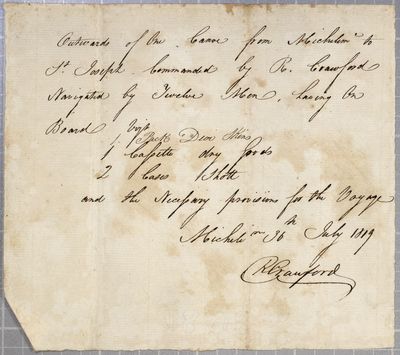 Outwards of One Canoe from Michilimc to
St. Joseph Commanded by R. Crawford
Navigated by Twelve Men, having On
Board Vizt
1 Pack Deer Skins
1 Cassette dry Goods
2 Cases Shott
and the Necessary provisions for the Voyage
Michili mc 30th July 1819
R Crawford